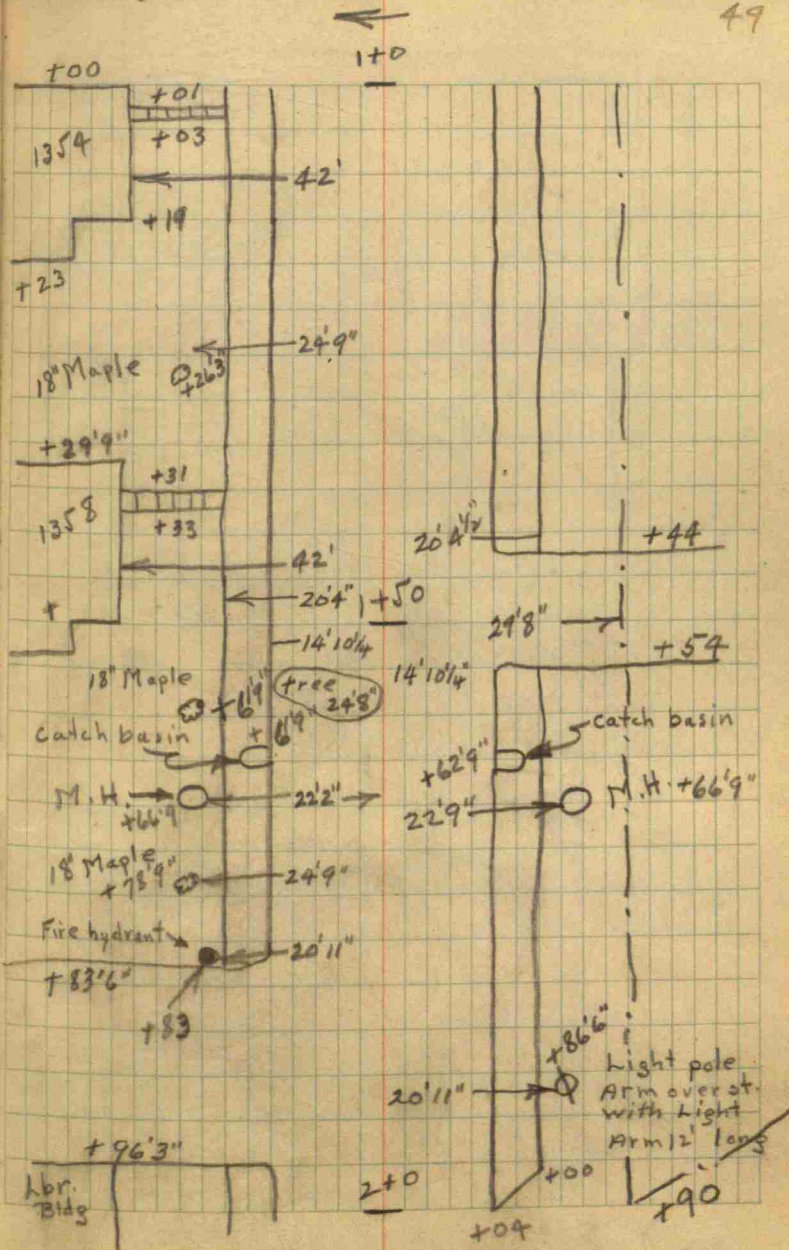 49
1+0
+00
+01
+03
1354
42'
+19
+23
24'9"
18" Maple
+26'3"
+29'9"
+31
+33
1358
20'4½"
+44
42'
20'4"
1+50
+
29'8"
14'10¼
14'10¼"
+54
18" Maple
+61'9"
tree
24'8"
Catch basin
+61'9"
catch basin
+62'9"
M.H.
+66'9
22'2"
22'9"
M.H. +66'9"
18" Maple
+78'9"
24'9"
Fire hydrant
20'11"
+83'6"
+83
+86'6"
20'11"
Light pole
Arm over st.
with Light
Arm 12' long
+96'3"
Lbr.
Bldg
2+0
+00
+90
+04